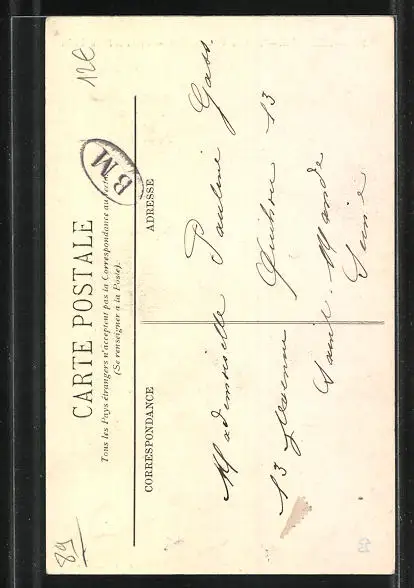 CARTE POSTALE
Tous les Pays étrangers n'acceptent pas la Correspondance au recto
(Se renseigner à la Poste).
CORRESPONDANCE
ADRESSE
BM
12€
89
Mademoiselle Pauline Gass.
13 Avenue Quihou 13
Saint-Mandé
Seine